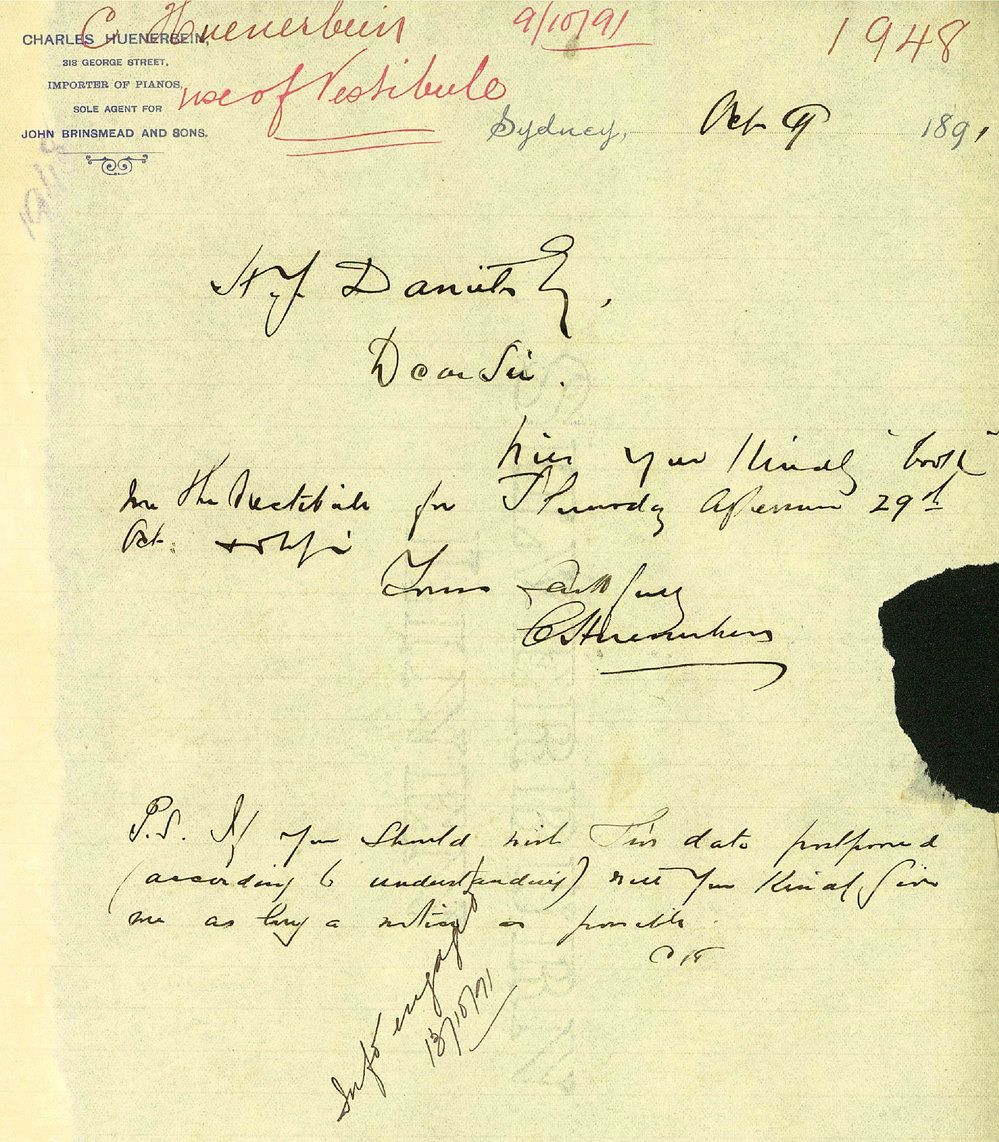 CHARLES HUENERBEIN,
318 GEORGE STREET,
IMPORTER OF PIANOS,
SOLE AGENT FOR
JOHN BRINSMEAD AND SONS.
C. Huenerbein
use of Vestibule
9/10/91
1948
1948
Sydney, Oct 9 1891
H. J. Daniels Esq,
Dear Sir.
Will you kindly "book"
me the Vestibule for Thursday Afternoon 29th
Oct.
Yours faithfully
C Huenerbein
P.S. If you should wish this date postponed
(according to understanding) will you kindly give
me as long a notice as possible
C H
Info engaged
13/10/91